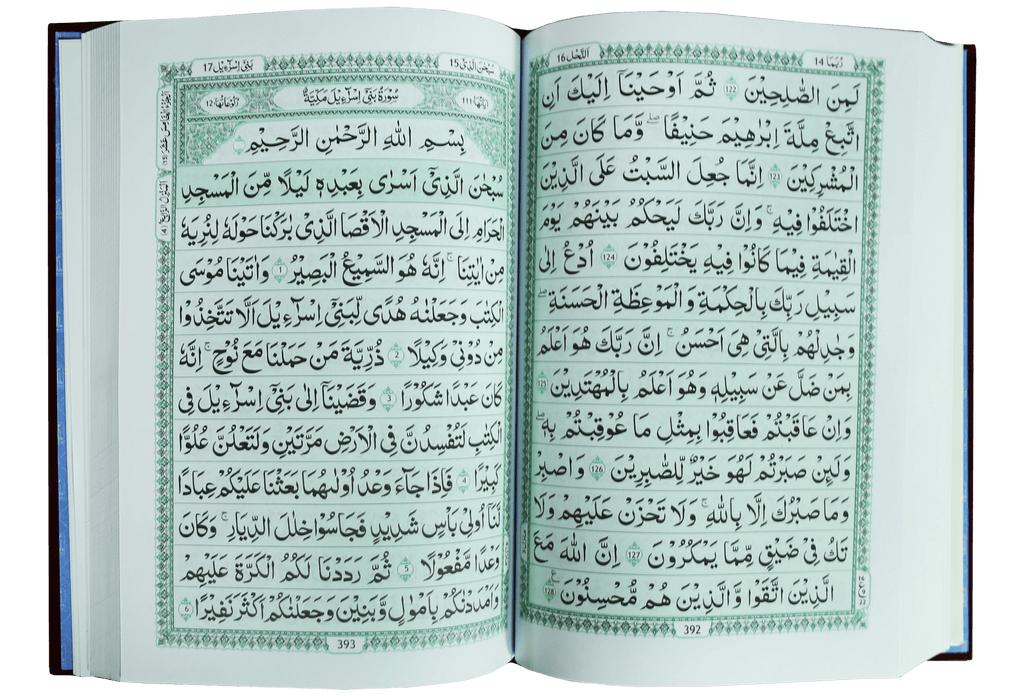 رُبَمَا 14
اَلنَّحْل 16
لَمِنَ الصّٰلِحِيْنَ ‎122‎ ثُمَّ اَوْحَيْنَاۤ اِلَيْكَ اَنِ
اتَّبِعْ مِلَّةَ اِبْرٰهِيْمَ حَنِيْفًا ؕ وَمَا كَانَ مِنَ
الْمُشْرِكِيْنَ ‎123‎ اِنَّمَا جُعِلَ السَّبْتُ عَلَى الَّذِيْنَ
اخْتَلَفُوْا فِيْهِ ؕ وَاِنَّ رَبَّكَ لَيَحْكُمُ بَيْنَهُمْ يَوْمَ
الْقِيٰمَةِ فِيْمَا كَانُوْا فِيْهِ يَخْتَلِفُوْنَ ‎124‎ اُدْعُ اِلٰى
سَبِيْلِ رَبِّكَ بِالْحِكْمَةِ وَالْمَوْعِظَةِ الْحَسَنَةِ
وَجَادِلْهُمْ بِالَّتِيْ هِيَ اَحْسَنُ ؕ اِنَّ رَبَّكَ هُوَ اَعْلَمُ
بِمَنْ ضَلَّ عَنْ سَبِيْلِهٖ وَهُوَ اَعْلَمُ بِالْمُهْتَدِيْنَ ‎125‎
وَاِنْ عَاقَبْتُمْ فَعَاقِبُوْا بِمِثْلِ مَا عُوْقِبْتُمْ بِهٖ
وَلَئِنْ صَبَرْتُمْ لَهُوَ خَيْرٌ لِّلصّٰبِرِيْنَ ‎126‎ وَاصْبِرْ
وَمَا صَبْرُكَ اِلَّا بِاللّٰهِ ؕ وَلَا تَحْزَنْ عَلَيْهِمْ وَلَا
تَكُ فِيْ ضَيْقٍ مِّمَّا يَمْكُرُوْنَ ‎127‎ اِنَّ اللّٰهَ مَعَ
الَّذِيْنَ اتَّقَوْا وَّالَّذِيْنَ هُمْ مُّحْسِنُوْنَ ‎128‎
392
سُبْحٰنَ الَّذِيْ 15
بَنِيْ اِسْرَآءِيْل 17
اٰيَاتُهَا ‎111‎
سُوْرَةُ بَنِيْ اِسْرَآءِيْلَ مَكِّيَّةٌ
رُكُوْعَاتُهَا ‎12‎
بِسْمِ اللّٰهِ الرَّحْمٰنِ الرَّحِيْمِ
سُبْحٰنَ الَّذِيْٓ اَسْرٰى بِعَبْدِهٖ لَيْلًا مِّنَ الْمَسْجِدِ
الْحَرَامِ اِلَى الْمَسْجِدِ الْاَقْصَا الَّذِيْ بٰرَكْنَا حَوْلَهٗ لِنُرِيَهٗ
مِنْ اٰيٰتِنَا ؕ اِنَّهٗ هُوَ السَّمِيْعُ الْبَصِيْرُ ‎1‎ وَاٰتَيْنَا مُوْسَى
الْكِتٰبَ وَجَعَلْنٰهُ هُدًى لِّبَنِيْٓ اِسْرَآءِيْلَ اَلَّا تَتَّخِذُوْا
مِنْ دُوْنِيْ وَكِيْلًا ‎2‎ ذُرِّيَّةَ مَنْ حَمَلْنَا مَعَ نُوْحٍ ؕ اِنَّهٗ
كَانَ عَبْدًا شَكُوْرًا ‎3‎ وَقَضَيْنَاۤ اِلٰى بَنِيْٓ اِسْرَآءِيْلَ فِي
الْكِتٰبِ لَتُفْسِدُنَّ فِي الْاَرْضِ مَرَّتَيْنِ وَلَتَعْلُنَّ عُلُوًّا
كَبِيْرًا ‎4‎ فَاِذَا جَآءَ وَعْدُ اُوْلٰىهُمَا بَعَثْنَا عَلَيْكُمْ عِبَادًا
لَّنَاۤ اُولِيْ بَاْسٍ شَدِيْدٍ فَجَاسُوْا خِلٰلَ الدِّيَارِ ؕ وَكَانَ
وَعْدًا مَّفْعُوْلًا ‎5‎ ثُمَّ رَدَدْنَا لَكُمُ الْكَرَّةَ عَلَيْهِمْ
وَاَمْدَدْنٰكُمْ بِاَمْوَالٍ وَّبَنِيْنَ وَجَعَلْنٰكُمْ اَكْثَرَ نَفِيْرًا ‎6‎
393